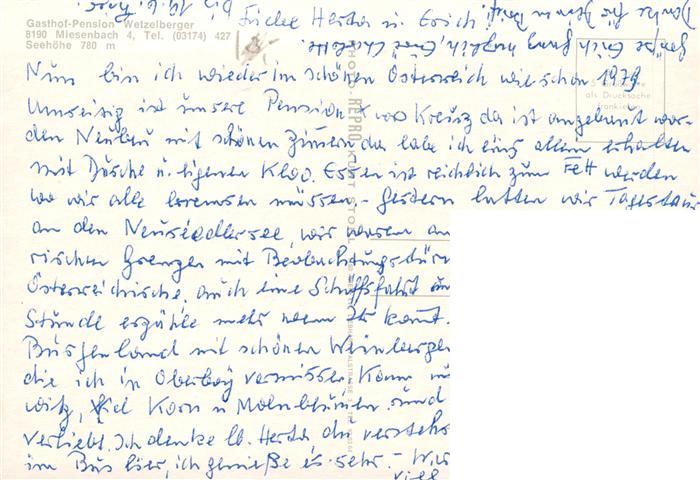 Gasthof-Pension Wetzelberger
8190 Miesenbach 4, Tel. (03174) 427
Seehöhe 780 m
bis 19.6.
Liebe Herta u. Erich!
Nun bin ich wieder im schönen Österreich wie schon 1979
ist unsere Pension x wo Kreuz da ist angebaut wor-
den Neubau mit schönen Zimern da habe ich eins allein erhalten
mit Dusche u. eigenen Kloo. Essen ist reichlich zum Fett werden
wo wir alle bremsen müssen. - Gestern hatten wir Tagestour
an den Neusiedlersee, wir waren an
rischen Grenzen mit Beobachtungstürm
Österreichische, auch eine Schiffsfahrt ein
Stunde erzähle mehr wenn Ihr komt.
Burgenland mit schönen Weinberge
die ich in Oberbay vermisse kann
viel Korn u Mohnblumen sind
verliebt. Ich denke lb. Herta du verstehs
im Bus hier, ich genieße es sehr. - Wir
viel
als Drucksache
frankieren